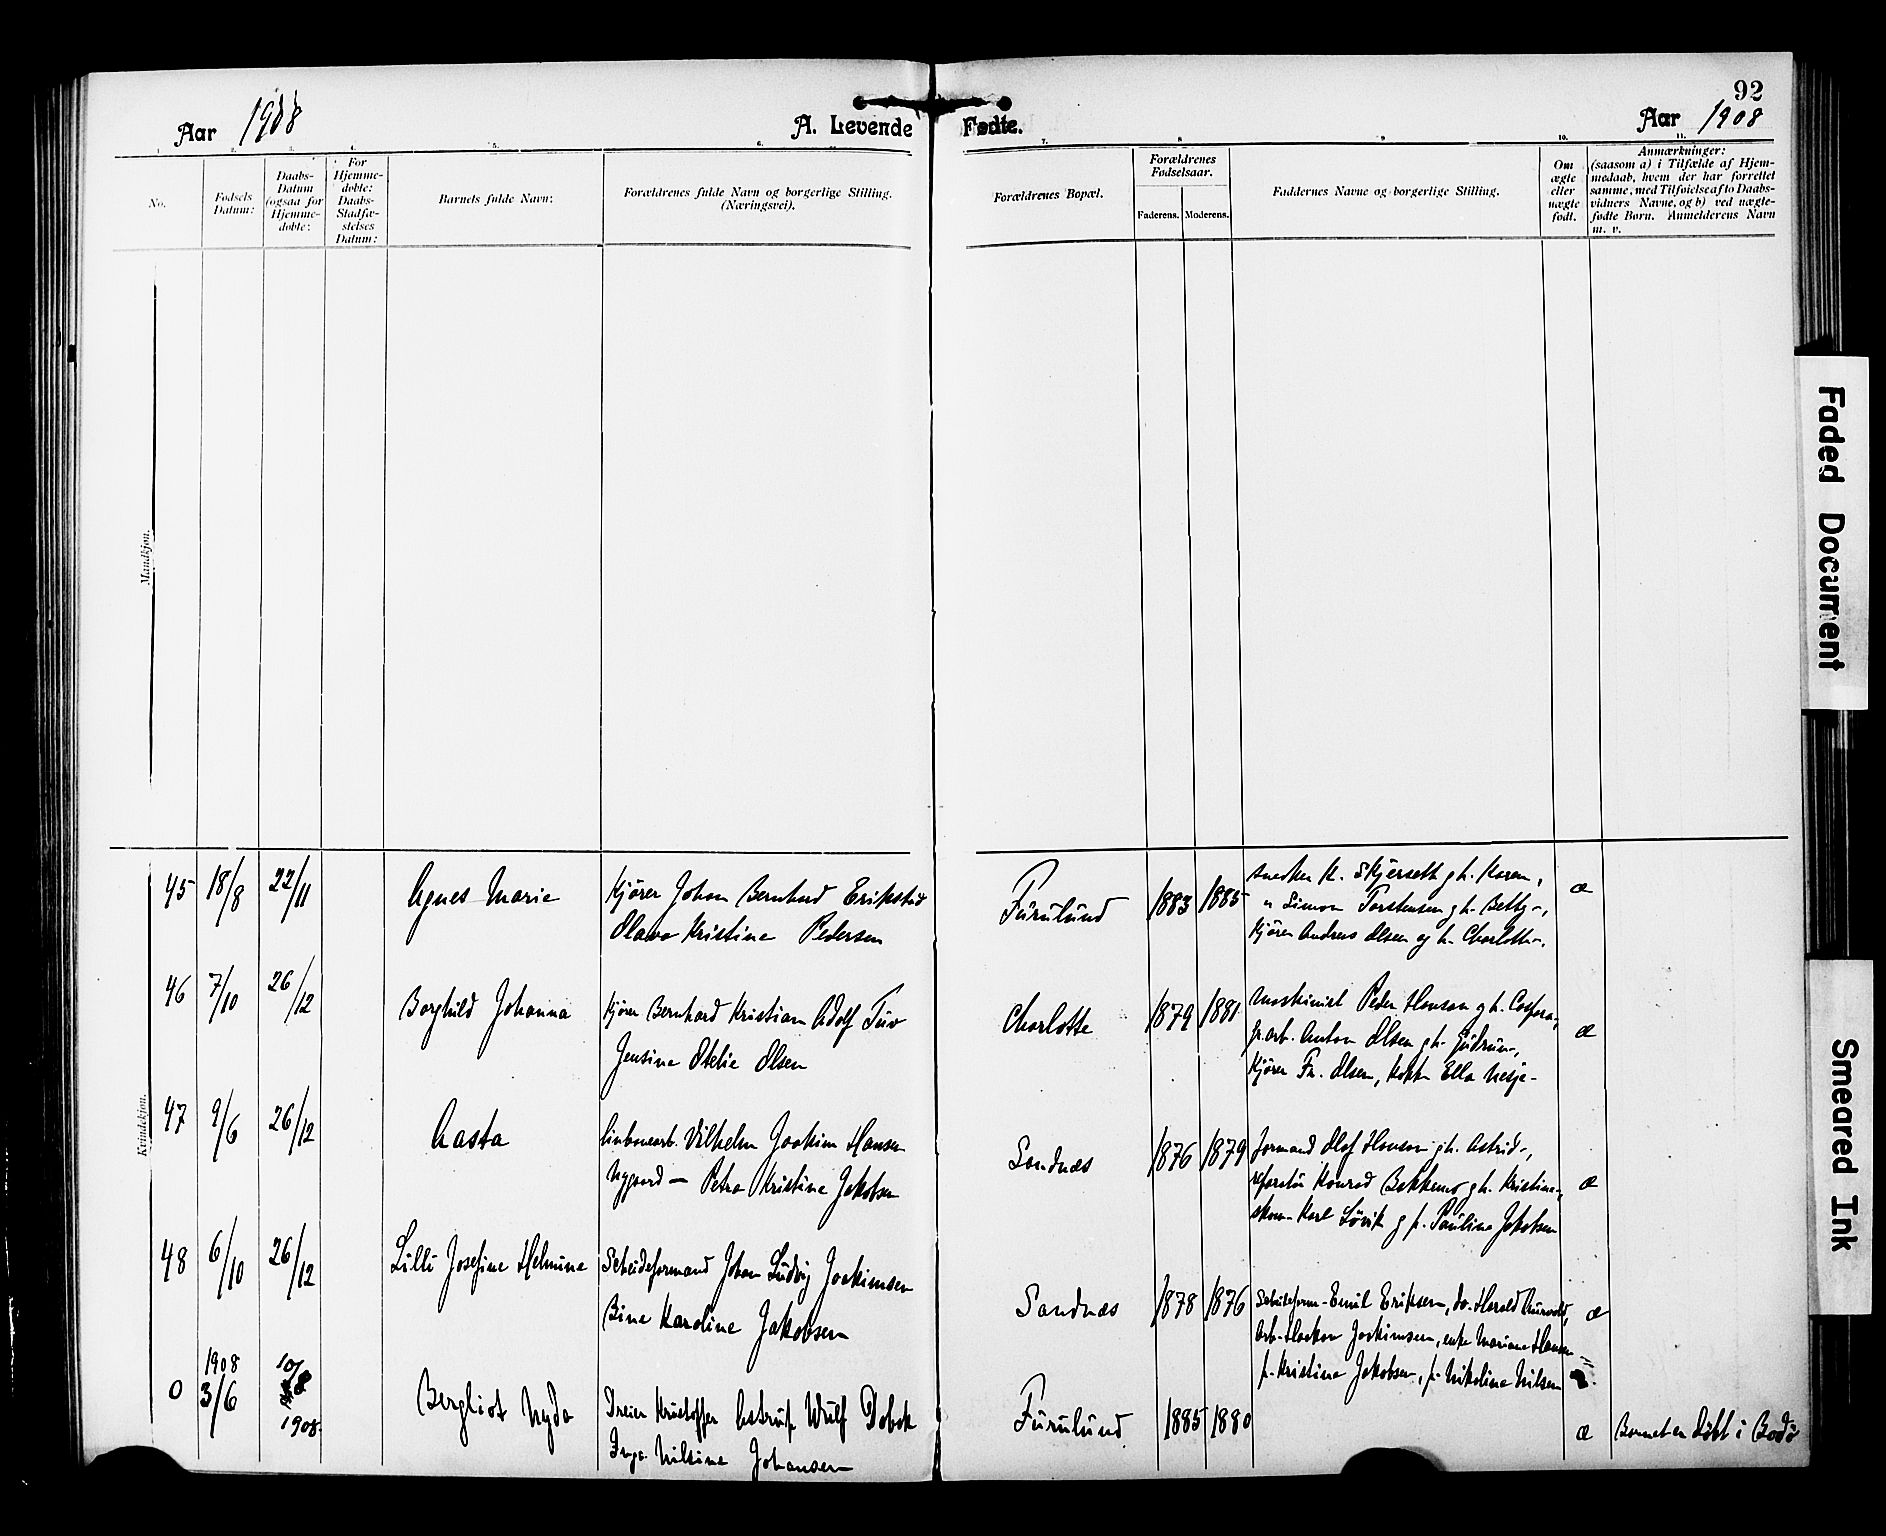 92
Aar 1908
A. Levende Fødte.
Aar 1908
1. 2. 3. 4. 5. 6. 7. 8. 9. 10. 11.
No.
Fødsels Datum:
Daabs-
Datum
(ogsaa for
Hjemme-
døbte:
For
Hjemme-
døbte:
Daabs-
Stadfæ-
stelses
Datum:
Barnets fulde Navn:
Forældrenes fulde Navn og borgerlige Stilling.
(Næringsvei).
Forældrenes Bopæl.
Forældrenes
Fødselsaar.
Faderens. Moderens.
Faddernes Navne og borgerlige Stilling.
Om
ægte
eller
uægte
født.
Anmærkninger:
(saasom a) i Tilfælde af Hjem-
medaab, hvem der har forrettet
samme, med Tilføielse af to Daabs-
vidners Navne, og b) ved uægte-
fødte Børn. Anmelderens Navn
m. v.
Mandkjøn.
Kvindekjøn.
45 18/8 22/11 Agnes Marie Kjører Johan Bernhard Erikstad
Olava Kristine Pedersen
Furulund 1883 1885
snedker K. Skjerseth g h. Karen,
" Simon Torstensen g h. Betty -,
Kjører Andreas Olsen og h. Charlotte -.
æ
46 7/10 26/12 Borghild Johanna Kjører Bernhard Kristian Adolf Tuv
Jensine Otelie Olsen
Charlotta 1879 1881
Maskinist Peder Hansen g h.
gr.arb. Anton Olsen g h. Gudrun -,
Kjører Fr. Olsen, Ella Nesje -
æ
47 9/6 26/12 Aasta Vilhelm Joakim Hansen
Nygaard - Petra Kristine Jakobsen
Sandnæs 1876 1879
Formand Olaf Hansen g h. Astrid -,
Konrad Bakkemo g h. Kristine -,
Karl Løvik g p. Pauline Jakobsen
æ
48 6/10 26/12 Lilli Josefine Helmine Scheideformand Johan Ludvig Joakimsen
Bine Karoline Jakobsen
Sandnæs 1878 1876
Scheideform - Emil Eriksen, do. Harald
Arb - Haakon Joakimsen, enke Mariane Hansen
p. Kristine Jakobsen, p. Nikoline Nilsen
æ
0 1908 3/6 10/8 1908. Bergliot Nyda Dreier Kristoffer Astrup Wulf Dobak
Inga Nilsine Johansen
Furulund 1885 1880
æ
Barnet er døbt i Bodø
Faded Document
Smeared Ink